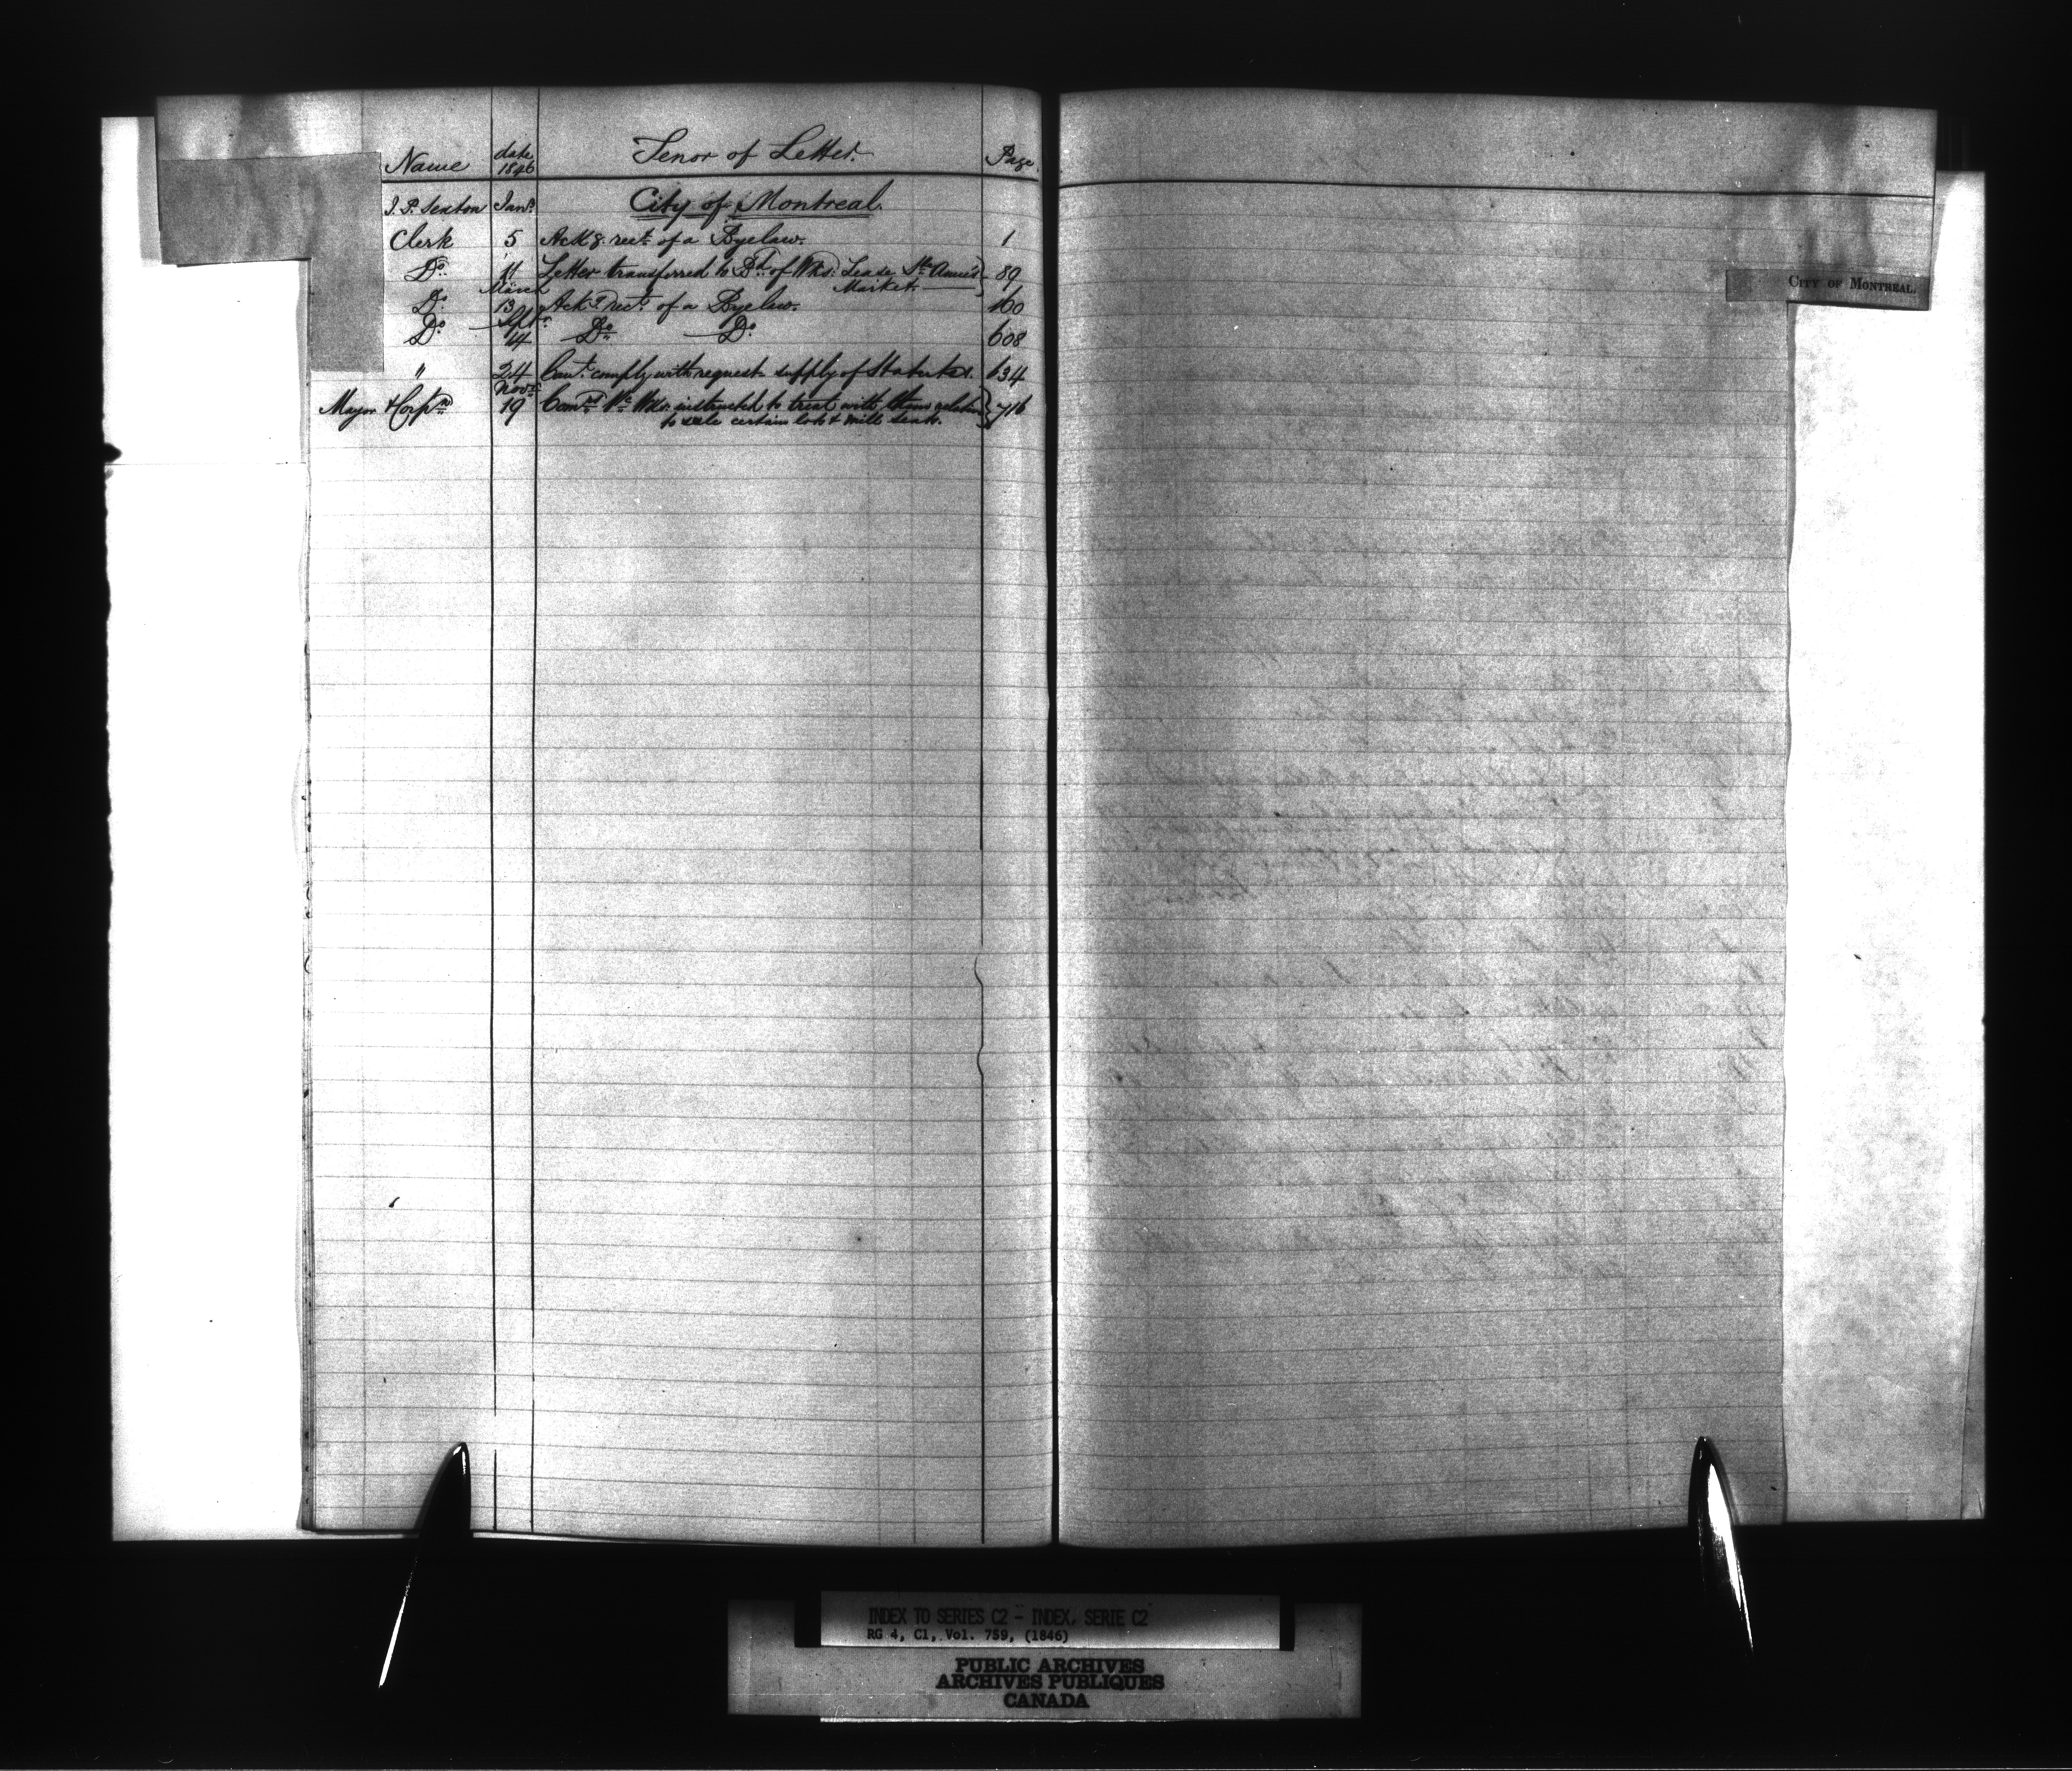 Name date 1846 Tenor of Letter. Page
J. P. Sexton Jany. City of Montreal.
Clerk 5 Ackg. rect. of a Byelaw. 1
Do. 11 Letter transferred to Bd. of Wks: Lease St. Anne's 89
Market.
March
Do. 13 Ackg. rect. of a Byelaw. 160
Sept.
Do. 14 Do. Do. 608
" 24 Can't comply with request supply of Statutes. 634
Novr.
Mayor & Corpn. 19 Comrs. Pc. Wks. instructed to treat with them relative 716
to sale certain lots & mill seats.
CITY OF MONTREAL.
INDEX TO SERIES C2 - INDEX, SERIE C2
RG 4, C1, Vol. 759, (1846)
PUBLIC ARCHIVES
ARCHIVES PUBLIQUES
CANADA